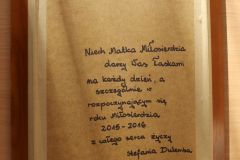 Niech Matka Miłosierdzia
darzy Was Łaskami
na każdy dzień, a
szczególnie w
rozpoczynającym się
roku Miłosierdzia
2015-2016
z całego serca życzy
Stefania Dulemba